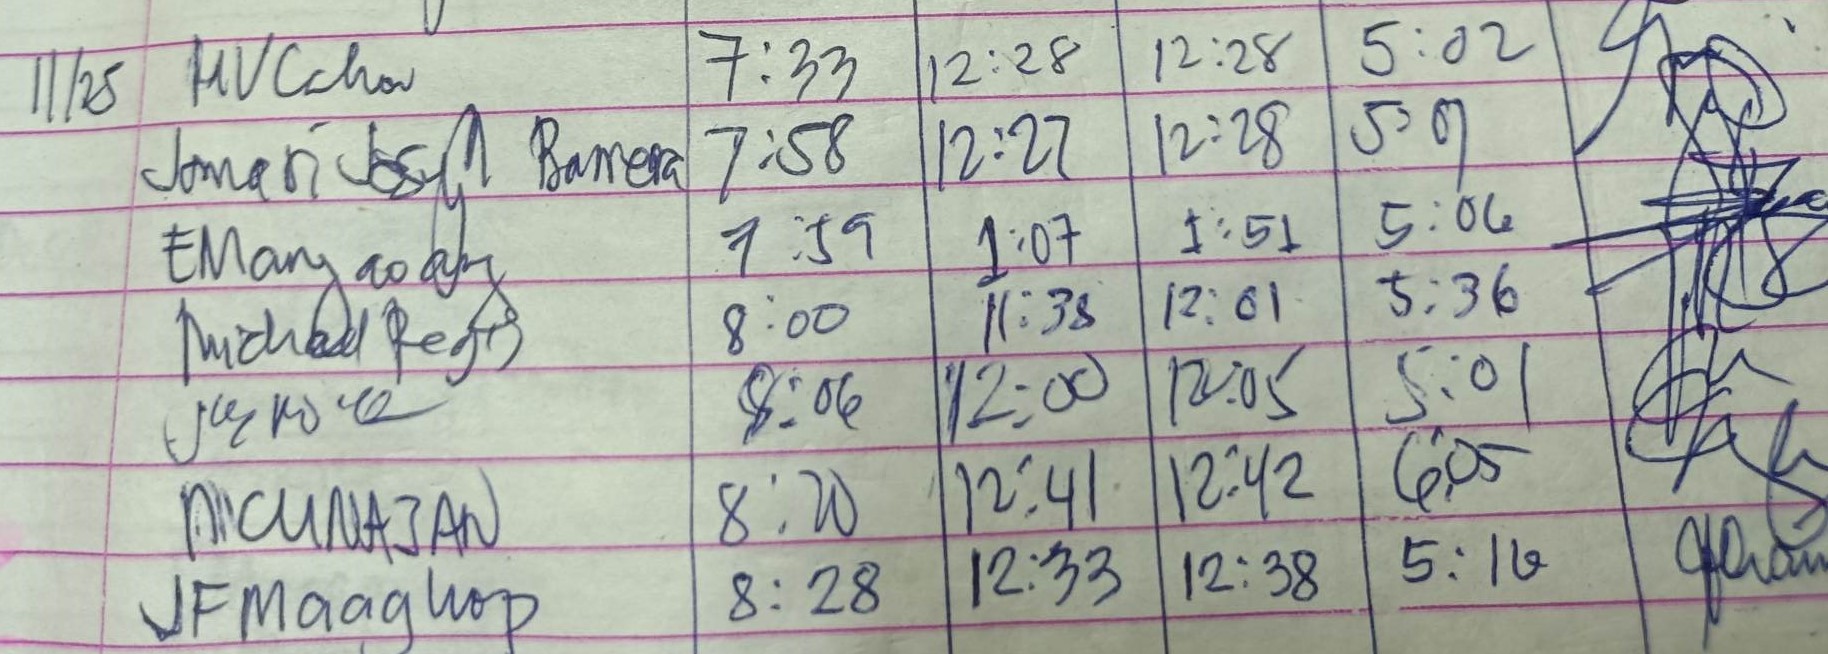 11/25 7:33 12:28 12:28 5:02
Jomari Barrera 7:58 12:27 12:28 5:07
7:59 1:07 1:51 5:06
Michael 8:00 11:38 12:01 5:36
8:06 12:00 12:05 5:01
MCUNAJAN 8:20 12:41 12:42 6:05
JFMaaghop 8:28 12:33 12:38 5:16